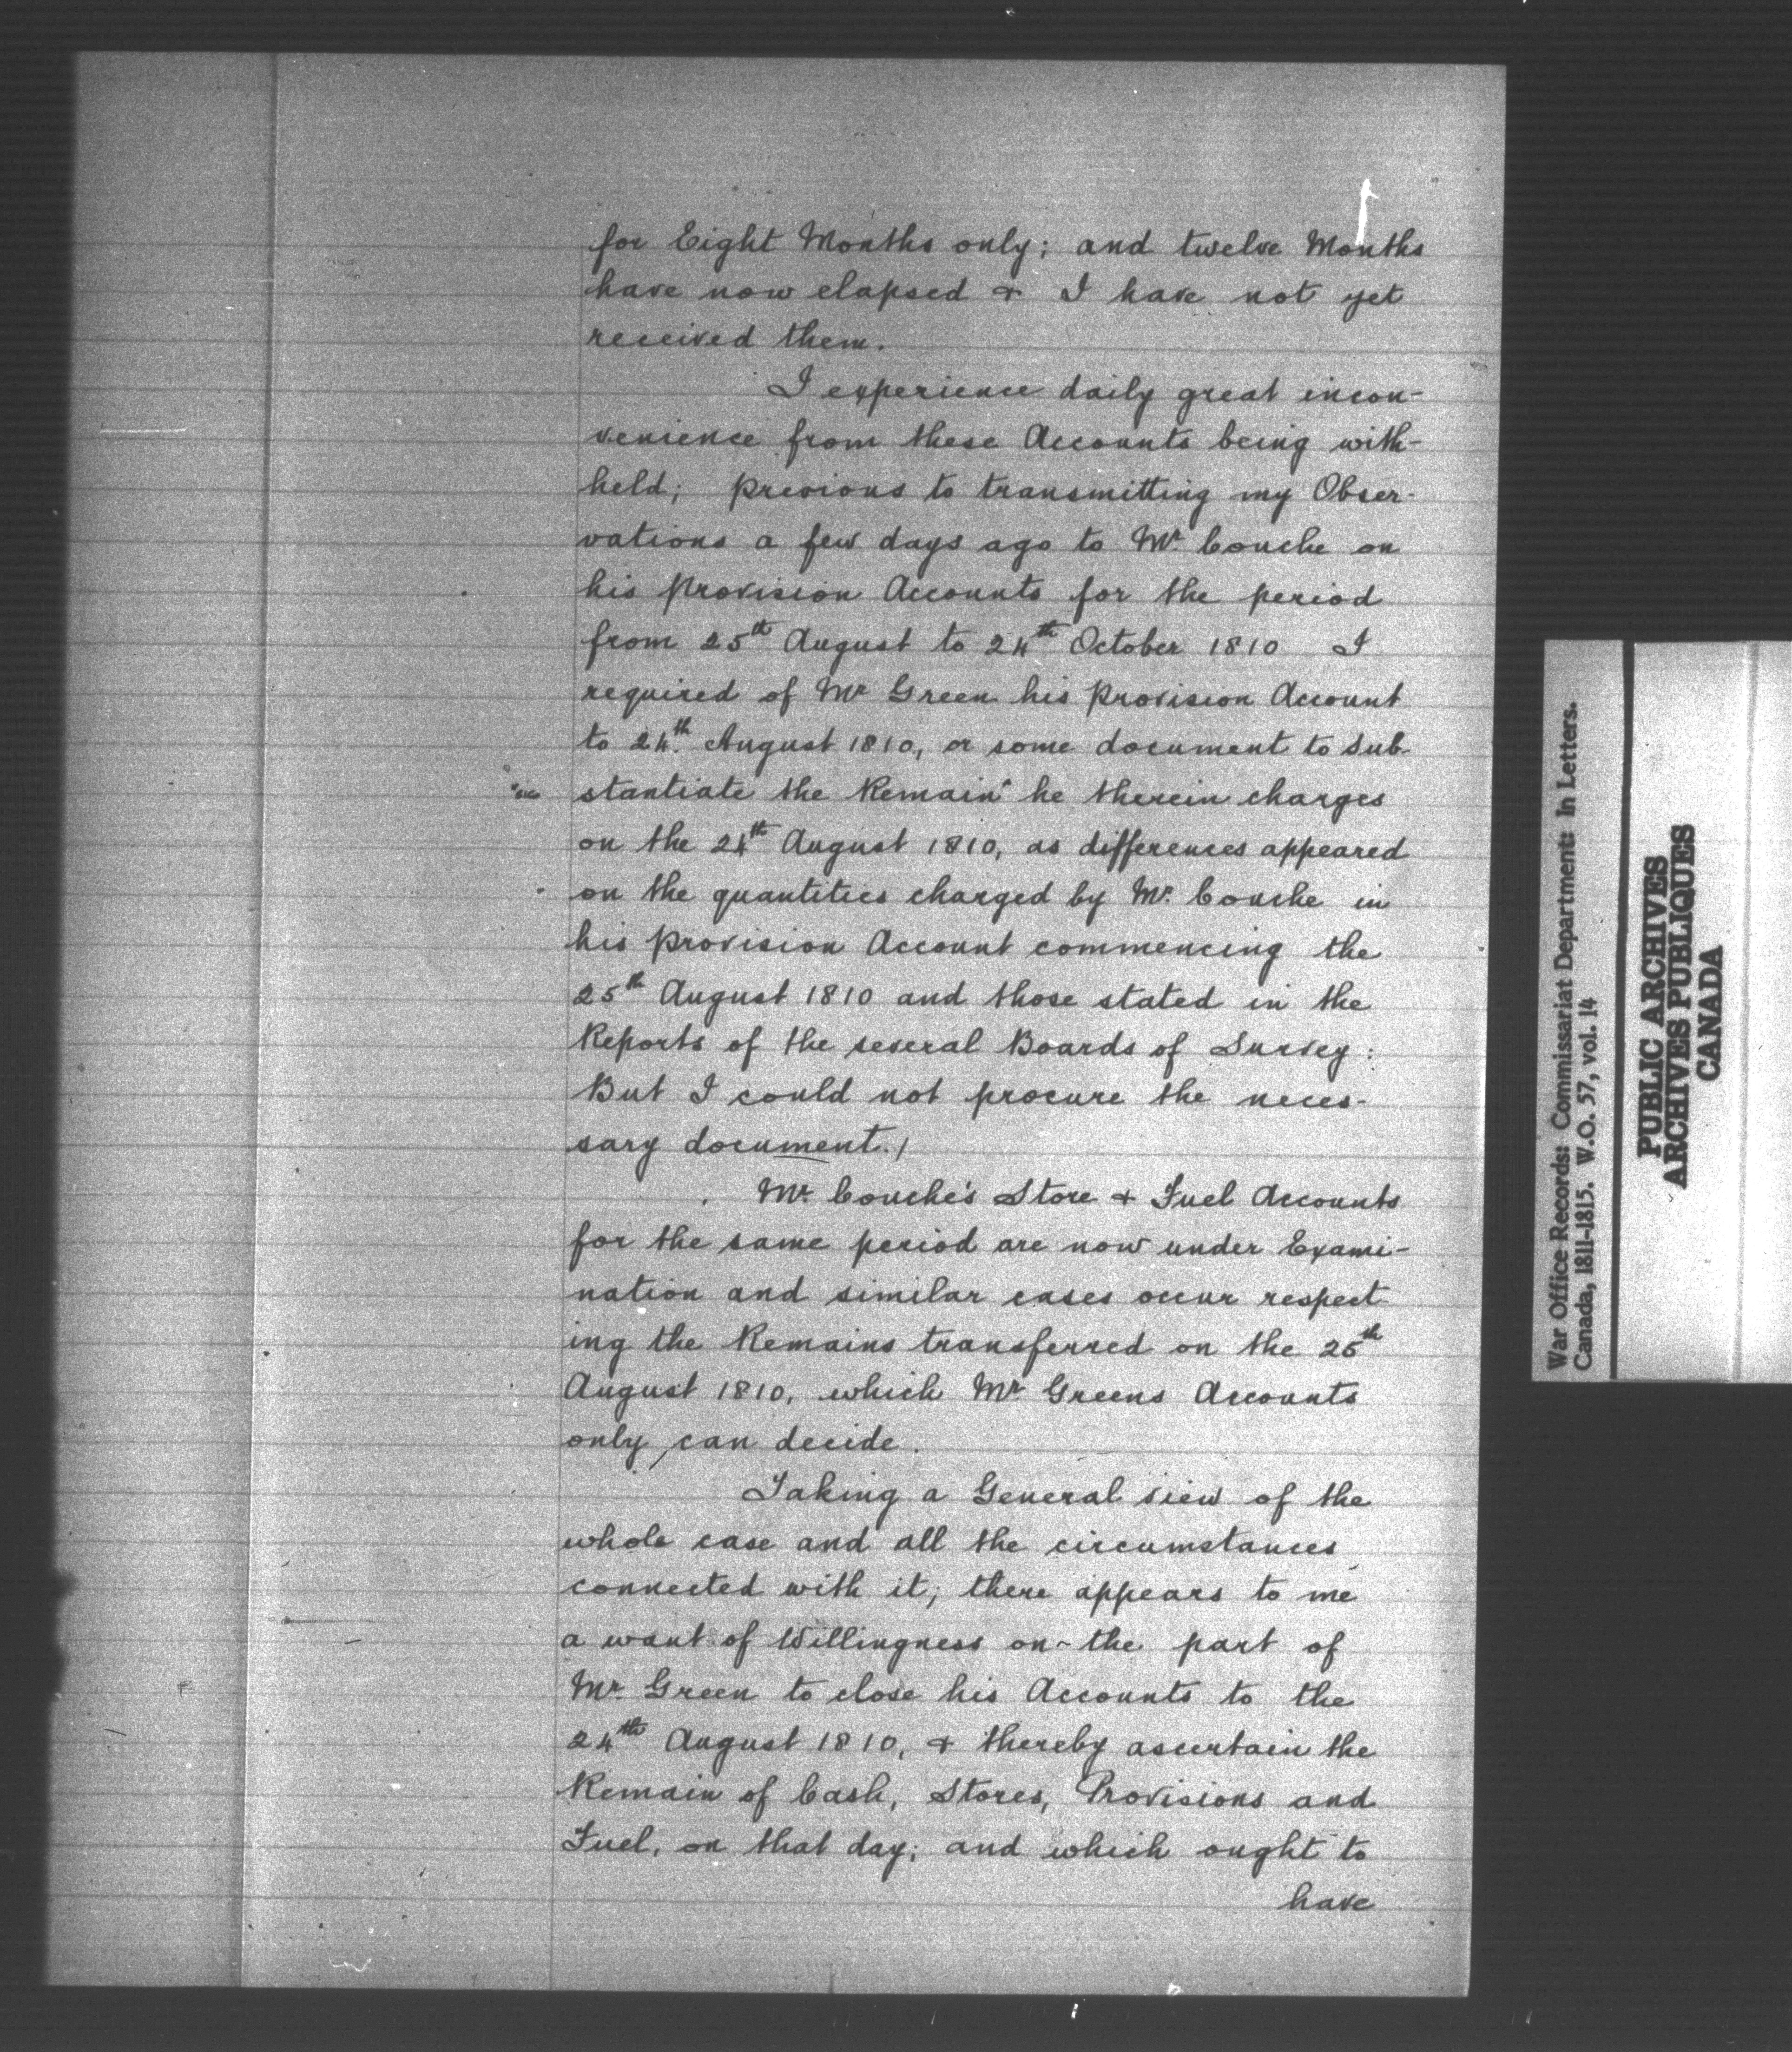 for Eight Months only; and twelve Months
have now elapsed & I have not yet
received them.
I experience daily great incon-
venience from these Accounts being with-
held; previous to transmitting my Obser-
vations a few days ago to Mr. Couche on
his provision Accounts for the period
from 25th August to 24th October 1810 I
required of Mr Green his provision Account
to 24th. August 1810, or some document to sub-
stantiate the Remain* he therein charges
on the 24th August 1810, as differences appeared
on the quantities charged by Mr. Couche in
his provision Account commencing the
25th August 1810 and those stated in the
Reports of the several Boards of Survey:
But I could not procure the neces-
sary document./
Mr. Couche's Store & Fuel Accounts
for the same period are now under Exami-
nation and similar cases occur respect-
ing the Remains transferred on the 25th
August 1810, which Mr Greens Accounts
only, can decide.
Taking a General view of the
whole case and all the circumstances
connected with it; there appears to me
a want of Willingness on the part of
Mr. Green to close his Accounts to the
24th August 1810, & thereby ascertain the
Remain of Cash, Stores, Provisions and
Fuel, on that day; and which ought to
have
War Office Records: Commissariat Department: In Letters.
Canada, 1811-1815. W.O. 57, vol. 14
PUBLIC ARCHIVES
ARCHIVES PUBLIQUES
CANADA